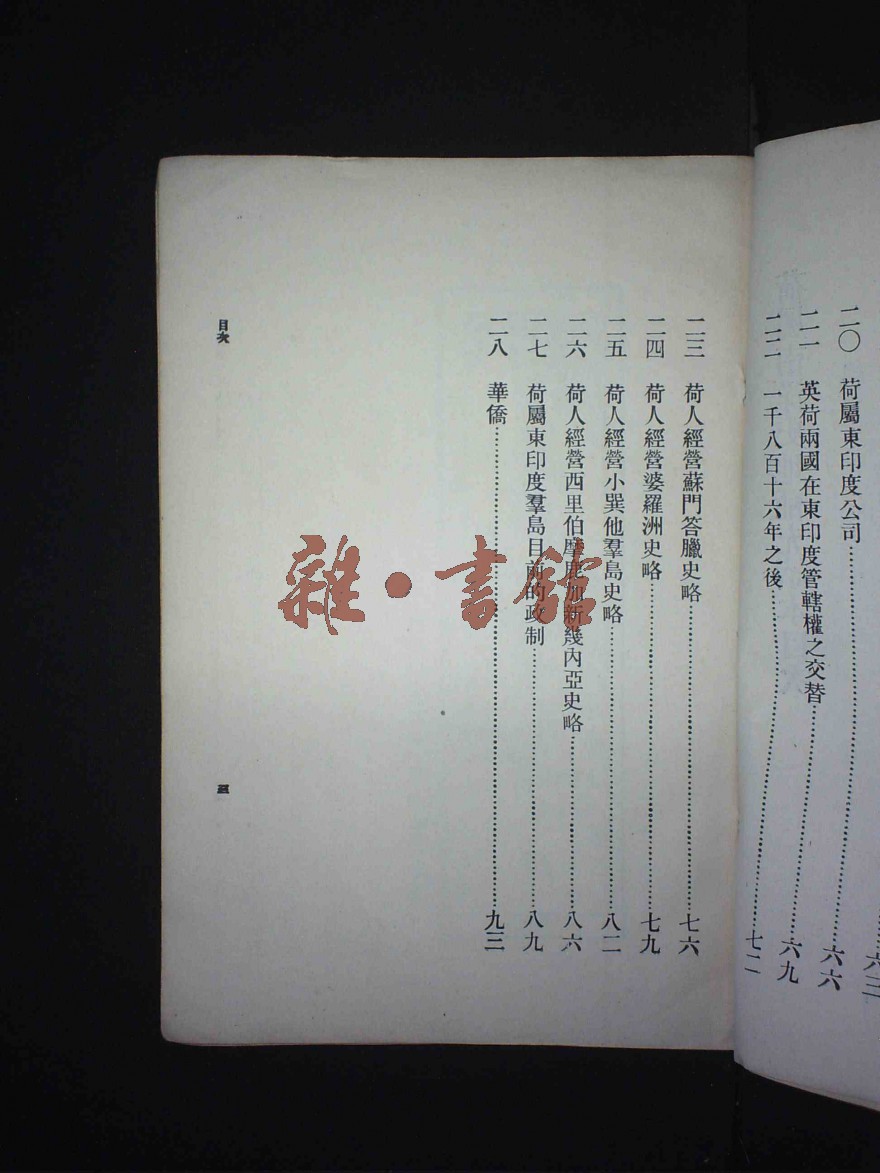 六三
二〇 荷屬東印度公司……六六
二一 英荷兩國在東印度管轄權之交替……六九
二二 一千八百十六年之後……七二
二三 荷人經營蘇門答臘史略……七六
二四 荷人經營婆羅洲史略……七九
二五 荷人經營小巽他羣島史略……八二
二六 荷人經營西里伯摩鹿加新幾內亞史略……八六
二七 荷屬東印度羣島目前的政制……八九
二八 華僑……九三
目次
三
雜·書館